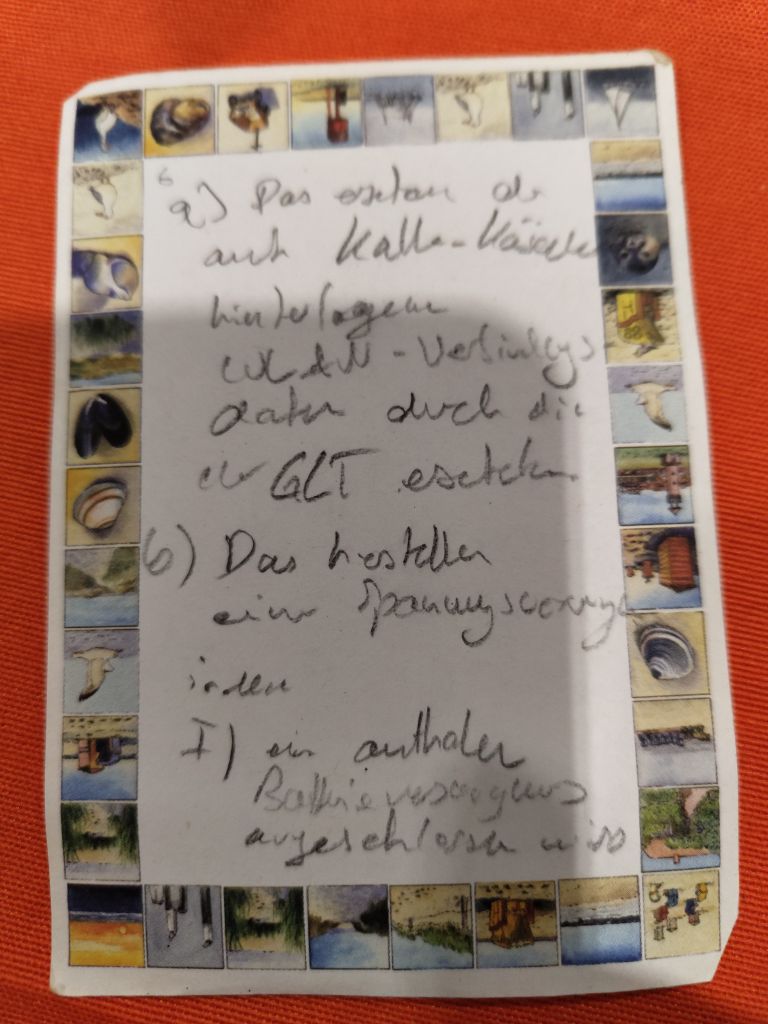 a) Das ersetzen der
auf Kalle-Käseglocke
hinterlegten
WLAN-Verbindungs-
daten durch die
der GLT ersetzen
b) Das herstellen
einer Spannungsversorgung
indem
I) ein
Batterieversorgung
angeschlossen wird